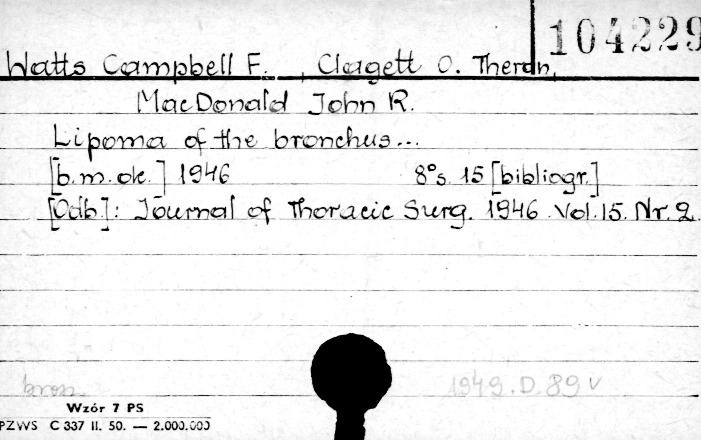 104229
Watts Campbell F., Clagett O. Theron,
MacDonald John R.
Lipoma of the bronchus...
[b.m.ok.] 1946 8°s. 15 [bibliogr.]
[Odb]: Journal of Thoracic Surg. 1946. Vol. 15. Nr. 2
brosz. 1949. D. 89 v
Wzór 7 PS
PZWS C 337 II. 50. — 2.000.000